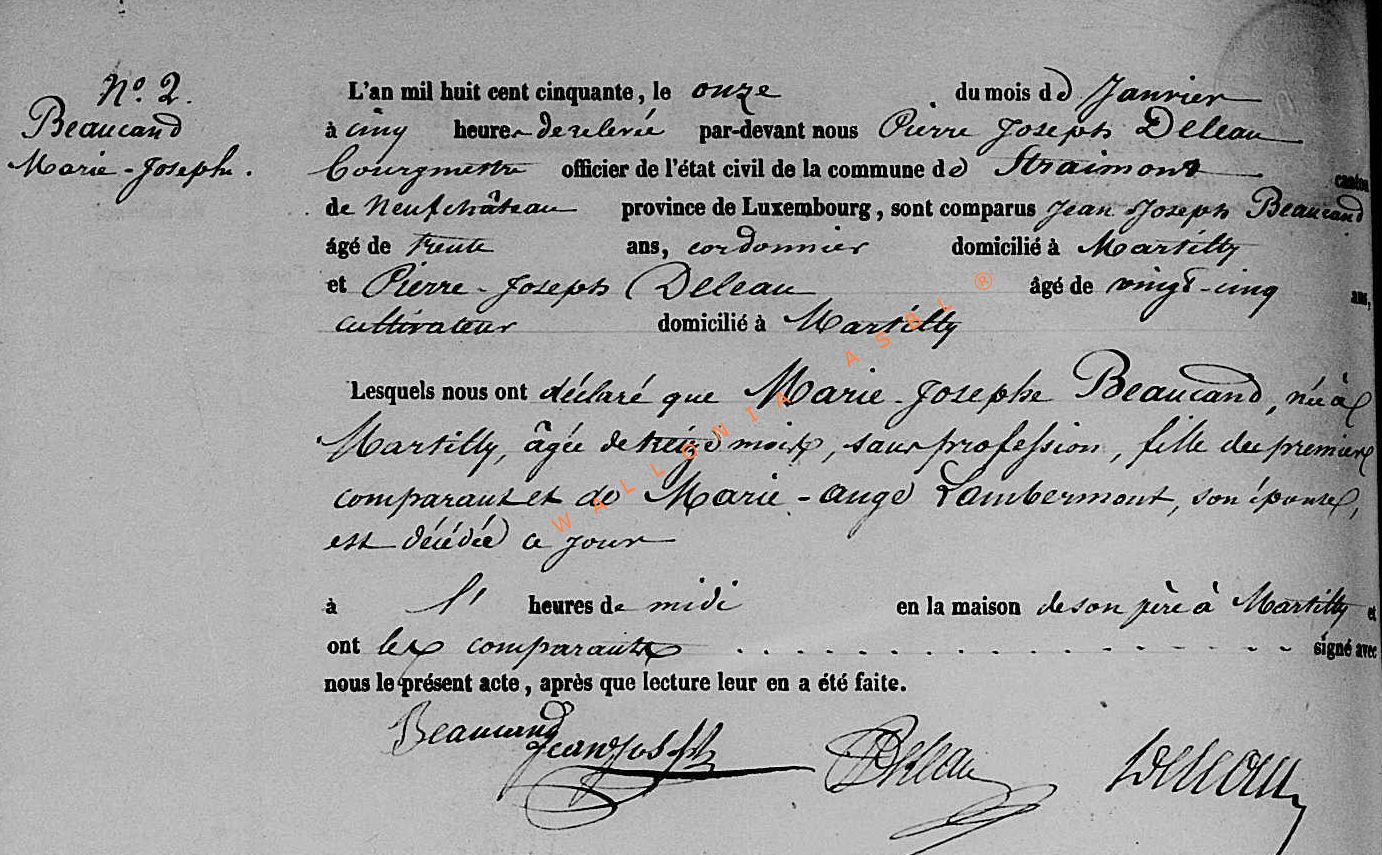 N.o 2.
Beaucand
Marie-Josephe.
L'an mil huit cent cinquante, le onze du mois de Janvier
à cinq heures de relevée par-devant nous Pierre Joseph Deleau
bourgmestre officier de l'état civil de la commune de Straimont canton
de Neufchâteau province de Luxembourg, sont comparus Jean Joseph Beaucand
âgé de trente ans, cordonnier domicilié à Martilly
et Pierre-Joseph Deleau âgé de vingt-cinq ans,
cultivateur domicilié à Martilly
Lesquels nous ont déclaré que Marie-Josephe Beaucand, née à
Martilly, âgée de treize mois, sans profession, fille du premier
comparant et de Marie-Ange Lambermont, son épouse,
est décédée ce jour
à heures de midi en la maison de son père à Martilly et
ont les comparants . . . . . . . . . . . . . . . . . . signé avec
nous le présent acte, après que lecture leur en a été faite.
Beaucand
Jean Joseph Deleau Deleau
WALLONIA ASBL ®